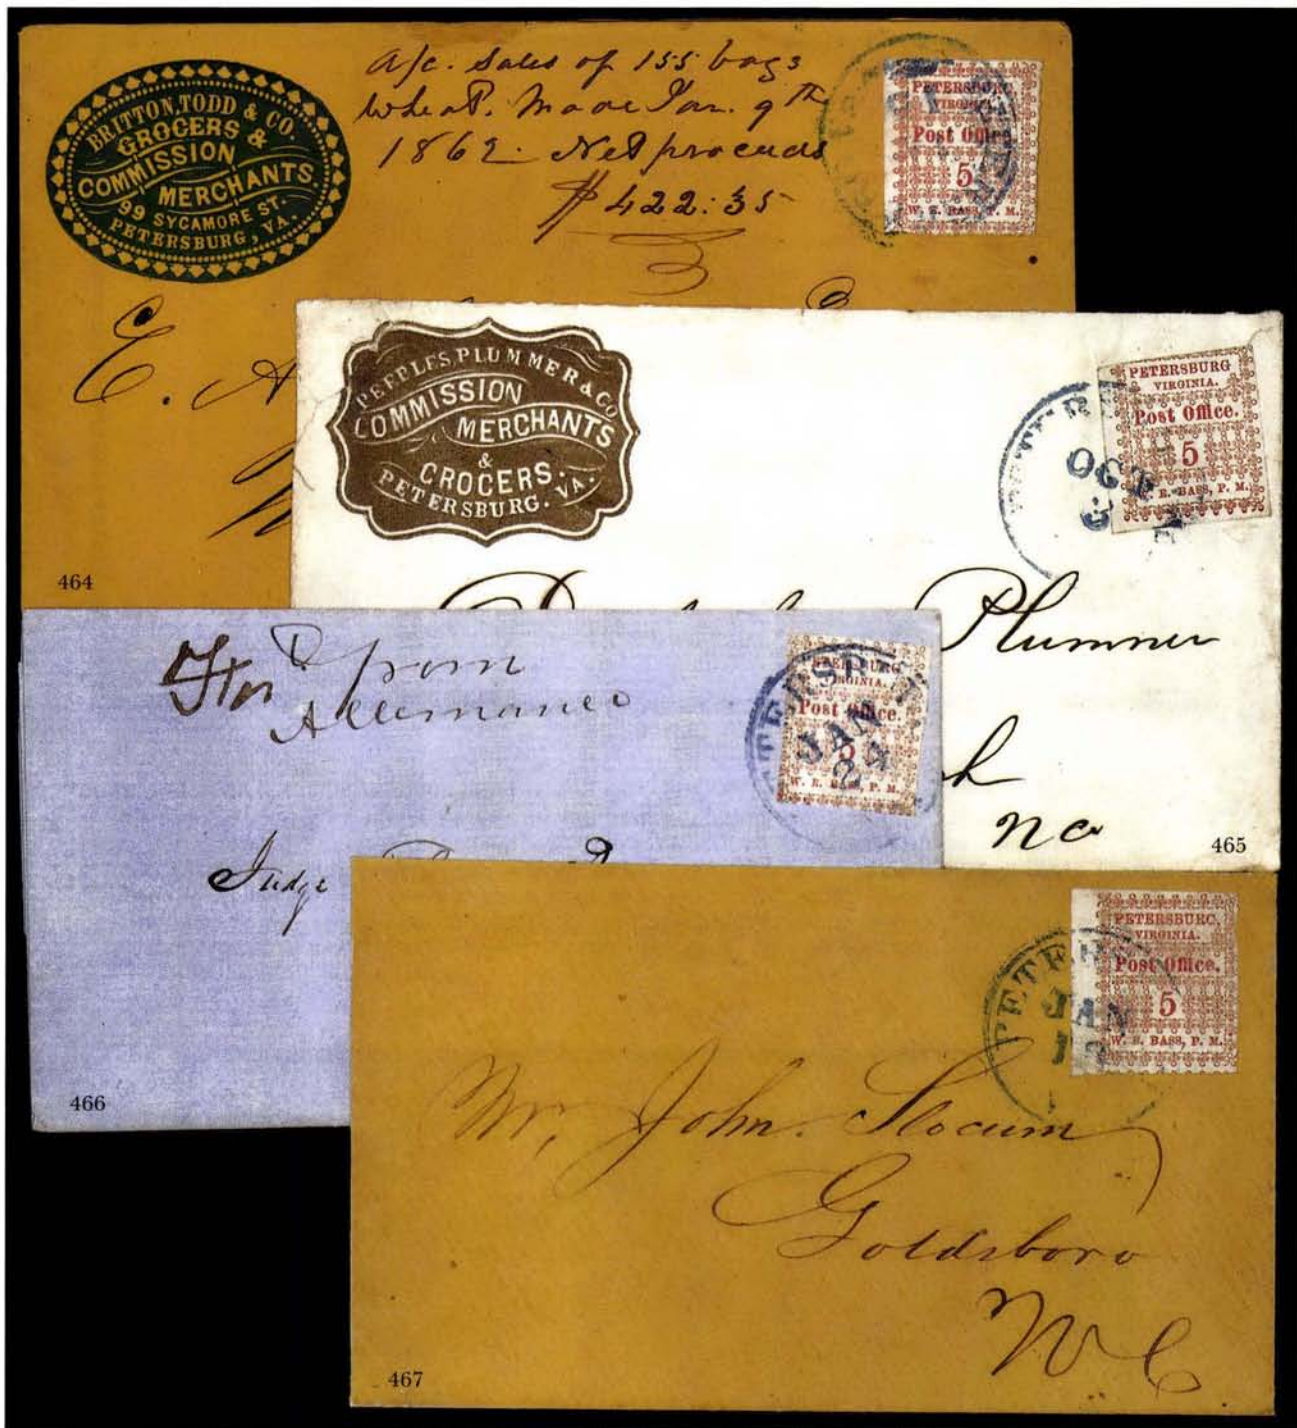 BRITTON, TODD & CO.
GROCERS &
COMMISSION
MERCHANTS.
99 SYCAMORE ST.
PETERSBURG, VA.
a/c. Sales of 155 bags
Wheat. Made Jan. 9th
1862. Net proceeds
$422:35
PETERSBURG,
VIRGINIA.
Post Office.
5
W. E. BASS, P. M.
E. A
464
PEEPLES, PLUMMER & CO
COMMISSION
MERCHANTS
&
GROCERS.
PETERSBURG. VA.
PETERSBURG
VIRGINIA.
Post Office.
5
W. E. BASS, P. M.
OCT
Plummer
h
NC
465
from
PETERSBURG
VIRGINIA.
Post Office.
5
W. E. BASS, P. M.
JAN
24
Judge
466
PETERSBURG,
VIRGINIA.
Post Office.
5
W. E. BASS, P. M.
PETER
JAN
Mr. John. Slocum
Goldsboro
N C
467